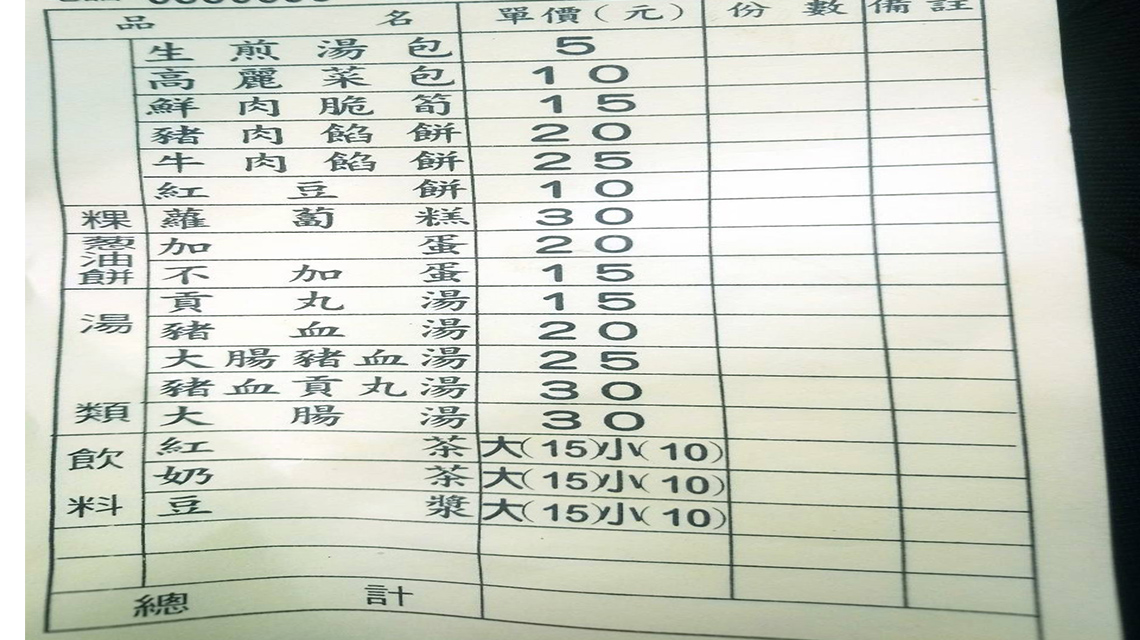 品名 單價(元) 份數 備註
生煎湯包 5
高麗菜包 10
鮮肉脆筍 15
豬肉餡餅 20
牛肉餡餅 25
紅豆餅 10
粿 蘿蔔糕 30
葱油餅 加蛋 20
不加蛋 15
湯類 貢丸湯 15
豬血湯 20
大腸豬血湯 25
豬血貢丸湯 30
大腸湯 30
飲料 紅茶 大(15)小(10)
奶茶 大(15)小(10)
豆漿 大(15)小(10)
總計